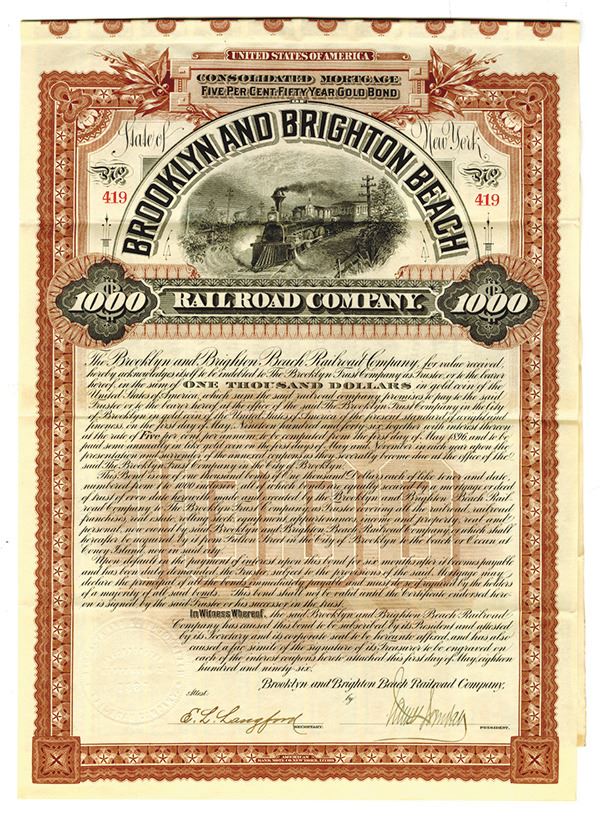 UNITED STATES OF AMERICA
CONSOLIDATED MORTGAGE
FIVE PER CENT. FIFTY YEAR GOLD BOND
OF
State of
New York
BROOKLYN AND BRIGHTON BEACH
No
419
No
419
$1000
RAILROAD COMPANY.
$1000
The Brooklyn and Brighton Beach Railroad Company, for value received,
hereby acknowledges itself to be indebted to The Brooklyn Trust Company as Trustee, or to the bearer
hereof, in the sum of ONE THOUSAND DOLLARS in gold coin of the
United States of America, which sum the said railroad company promises to pay to the said
Trustee or to the bearer hereof, at the office of the said The Brooklyn Trust Company in the City
of Brooklyn in gold coin of the United States of America of the present standard weight and
fineness, on the first day of May, Nineteen hundred and forty six, together with interest thereon
at the rate of Five per cent per annum, to be computed from the first day of May 1896, and to be
paid semi-annually in like gold coin on the first days of May and November in each year upon the
presentation and surrender of the annexed coupons as they severally become due at the office of the
said The Brooklyn Trust Company in the City of Brooklyn.
This Bond is one of thousand Dollars each of like tenor and date
numbered from
of trust of even date herewith made and executed by the Brooklyn and Brighton Beach Rail-
road Company to The Brooklyn Trust Company as Trustee covering all the railroad, railroad
franchises, real estate, rolling stock, equipment, appurtenances, income and property, real and
personal, now owned by said Brooklyn and Brighton Beach Railroad Company or which shall
hereafter be acquired by it from Fulton Street in the City of Brooklyn to the beach or Ocean at
Coney Island, now in said city.
Upon default in the payment of interest upon this bond for six months after it becomes payable
and has been duly demanded, the Trustee, subject to the provisions of the said Mortgage may
declare the principal of all the bonds immediately payable and must do so if required by the holders
of a majority of all said bonds. This bond shall not be valid until the Certificate endorsed here-
on is signed by the said Trustee or his successor in the trust.
In Witness Whereof, the said Brooklyn and Brighton Beach Railroad
Company has caused this bond to be subscribed by its President and attested
by its Secretary and its corporate seal to be hereunto affixed, and has also
caused a fac simile of the signature of its Treasurer to be engraved on
each of the interest coupons hereto attached this first day of May, eighteen
hundred and ninety-six.
Brooklyn and Brighton Beach Railroad Company,
Attest:
by
E. L. Langford
SECRETARY.
PRESIDENT.
AMERICAN
BANK NOTE CO. NEW YORK